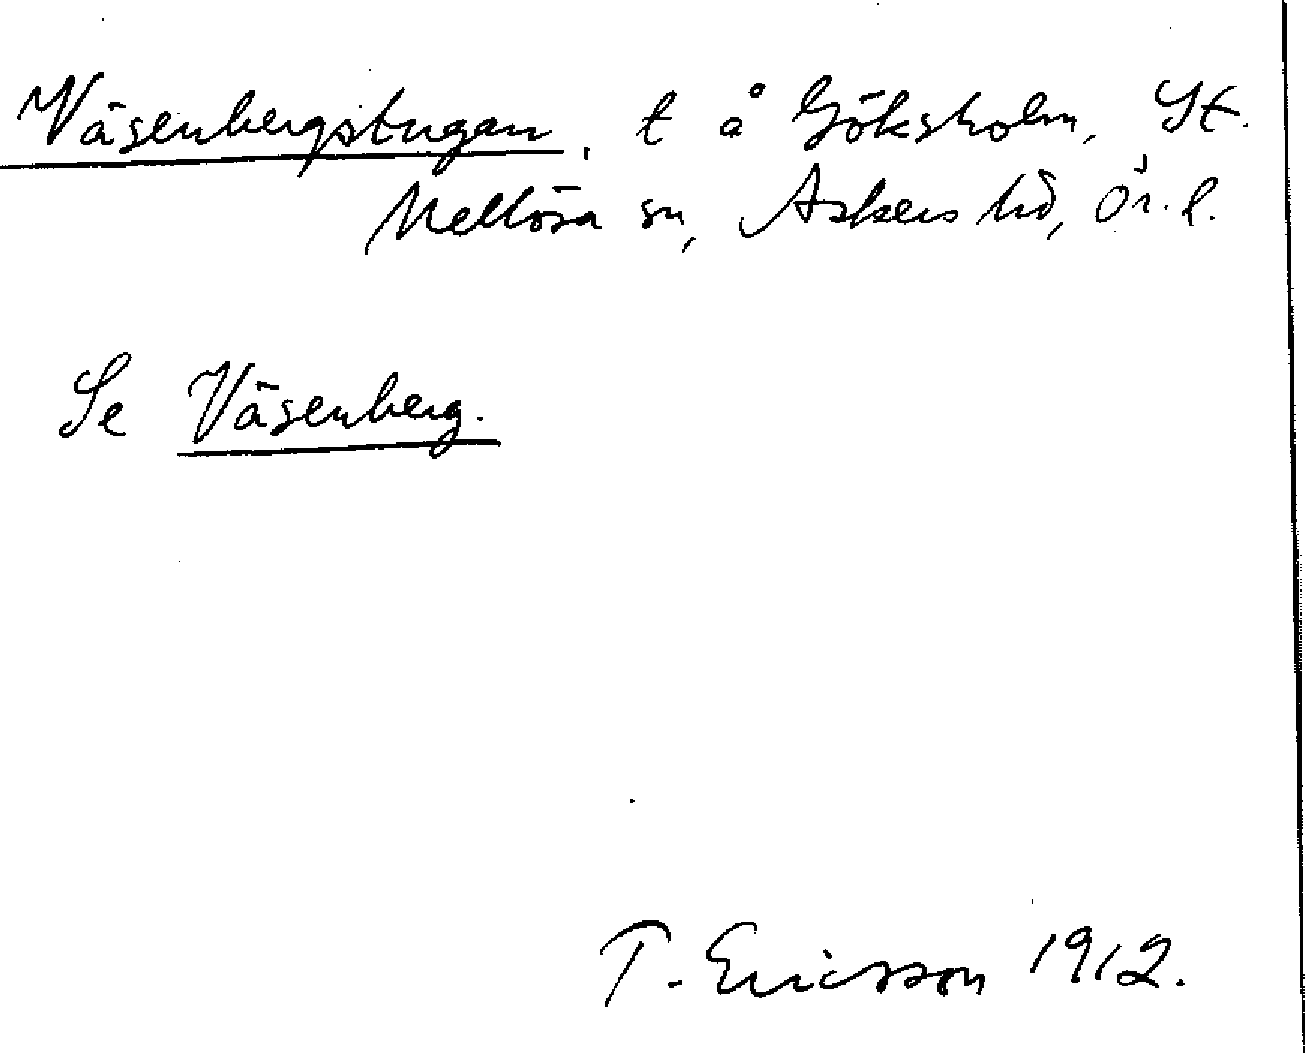 Väsenbergstugan, t å Göksholm, St.
Mellösa sn, Askers hd, Ör. l.
Se Väsenberg.
T. Ericsson 1912.